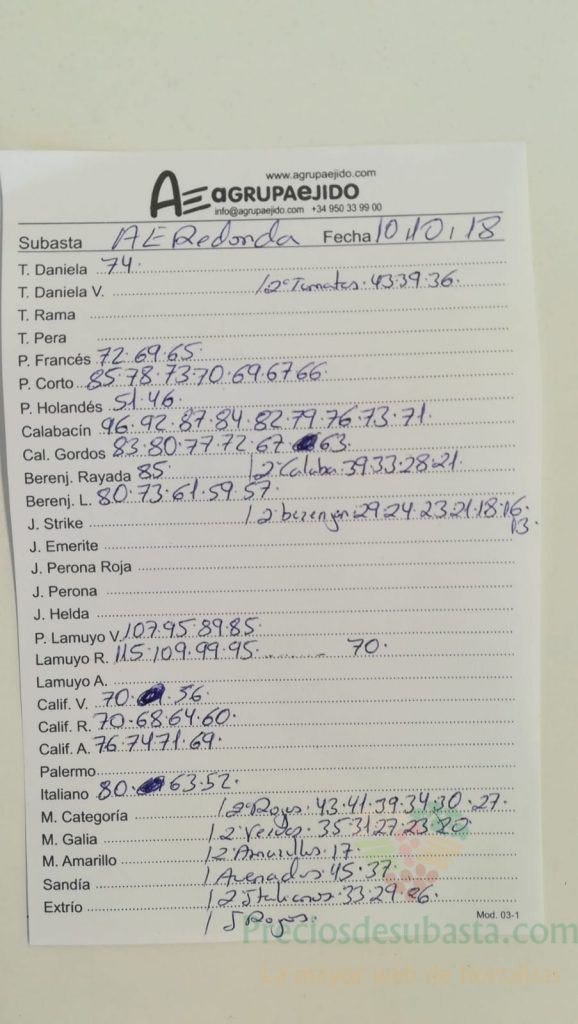 www.agrupaejido.com
AE AGRUPAEJIDO
info@agrupaejido.com +34 950 33 99 00
Subasta AE Redonda Fecha 10,10,18
T. Daniela 74.
T. Daniela V. / 2ª Tomates. 43.39.36.
T. Rama
T. Pera
P. Francés 72.69.65.
P. Corto 85.78.73.70.69.67.66.
P. Holandés 51.46.
Calabacín 96.92.87.84.82.79.76.73.71.
Cal. Gordos 83.80.77.72.67. 63.
Berenj. Rayada 85. / 2ª Calaba 39.33.28.21.
Berenj. L. 80.73.61.59.57.
J. Strike / 2ª berengen 29.24.23.21.18.16.
13.
J. Emerite
J. Perona Roja
J. Perona
J. Helda
P. Lamuyo V. 107.95.89.85.
Lamuyo R. 115.109.99.95.......... 70.
Lamuyo A.
Calif. V. 70. .56.
Calif. R. 70.68.64.60.
Calif. A. 76.74.71.69.
Palermo
Italiano 80. 63.52.
M. Categoría / 2ª Rojos. 43.41.39.34.30.27.
M. Galia / 2ª Verdes. 35.31.27.23.20
M. Amarillo / 2ª Amarillos. 17.
Sandía / Asenados. 45.37.
Extrío / 2 Italianos. 33.29.26.
/ J Rojos.
Mod. 03-1
Preciosdesubasta.com
La mayor web de hortalizas